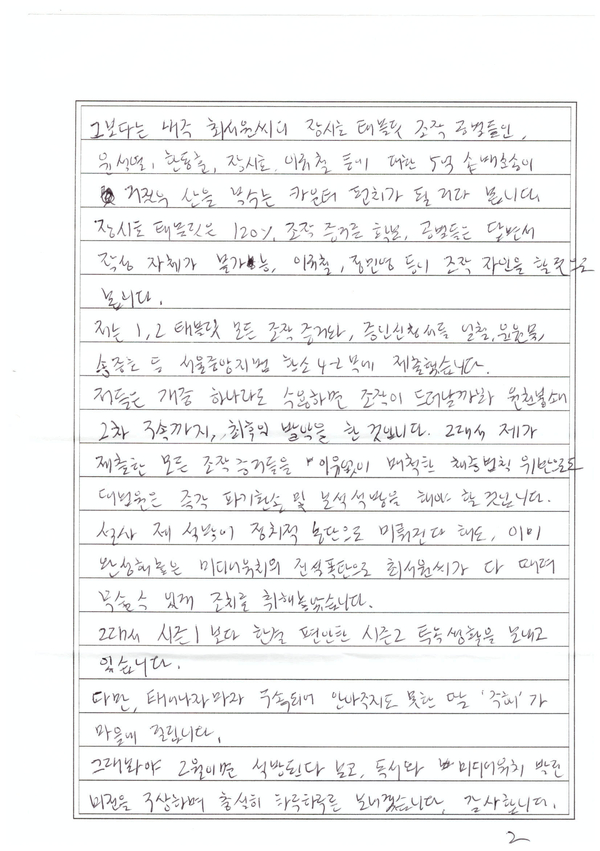 그보다는 내주 최서원씨의 장시호 태블릿 조작 공범들인,
윤석열, 한동훈, 장시호, 이규철 등에 대한 5억 손배소송이
거짓의 산을 부수는 카운터 펀치가 될 거라 봅니다.
장시호 태블릿은 120% 조작 증거를 확보, 공범들은 답변서
작성 자체가 불가능, 이규철, 정민영 등이 조작 자인을 할 것으로
봅니다.
저는 1,2 태블릿 모든 조작 증거와, 증인신청서를
송중호 등 서울중앙지법 항소4-2부에 제출했습니다.
저들은 개중 하나라도 수용하면 조작이 드러날까봐
2차 구속까지, 최후의 발악을 한 것입니다. 그래서 제가
제출한 모든 조작 증거들을 이유없이 배척한 채증법칙 위반으로도
대법원은 즉각 파기환송 및 보석 석방을 해야 할 것입니다.
설사 제 석방이 정치적 농단으로 미뤄진다 해도, 이미
완성해놓은 미디어워치의 진실폭탄으로 최서원씨가 다 때려
부술 수 있게 조치를 취해놓았습니다.
그래서 시즌1 보다 한결 편안한 시즌2 독방생활을 보내고
있습니다.
다만, 태어나자마자 구속되어 안아주지도 못한 딸 '주희'가
마음에 걸립니다.
그래봐야 2월이면 석방된다 보고, 독서와 미디어워치 발전
비전을 구상하며 충실히 하루하루를 보내겠습니다, 감사합니다.
2